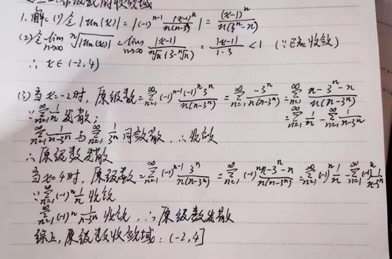 1.解: (1)令 |un(x)| = |(-1)^{n-1} (x-1)^n / n(n-3^n)| = |(x-1)^n / n(3^n-n)|
(2)令 lim_{n→∞} \sqrt[n]{|un(x)|} = lim_{n→∞} |x-1| / \sqrt[n]{n}(3-\sqrt[n]{n}) = |x-1| / 1·3 < 1 (∵已知收敛)
∴ x∈(-2,4)
(3)当x=-2时, 原级数=∑_{n=1}^{∞} (-1)^{n-1} (-1)^n 3^n / n(n-3^n) = ∑_{n=1}^{∞} -3^n / n(n-3^n) = ∑_{n=1}^{∞} n-3^n-n / n(n-3^n)
∵∑_{n=1}^{∞} 1/n 发散; = ∑_{n=1}^{∞} 1/n - ∑_{n=1}^{∞} 1/n-3^n
∑_{n=1}^{∞} 1/n-3^n 与 ∑_{n=1}^{∞} 1/3^n 同敛散, ∴收敛
∴原级数发散
当x=4时, 原级数=∑_{n=1}^{∞} (-1)^{n-1} 3^n / n(n-3^n) = ∑_{n=1}^{∞} (-1)^n n-3^n-n / n(n-3^n) = ∑_{n=1}^{∞} (-1)^n 1/n - ∑_{n=1}^{∞} (-1)^n 1/n-3^n
∵∑_{n=1}^{∞} (-1)^n 1/n 收敛
∑_{n=1}^{∞} (-1)^n 1/n-3^n 收敛, ∴原级数发散
综上, 原级数收敛域: (-2,4]